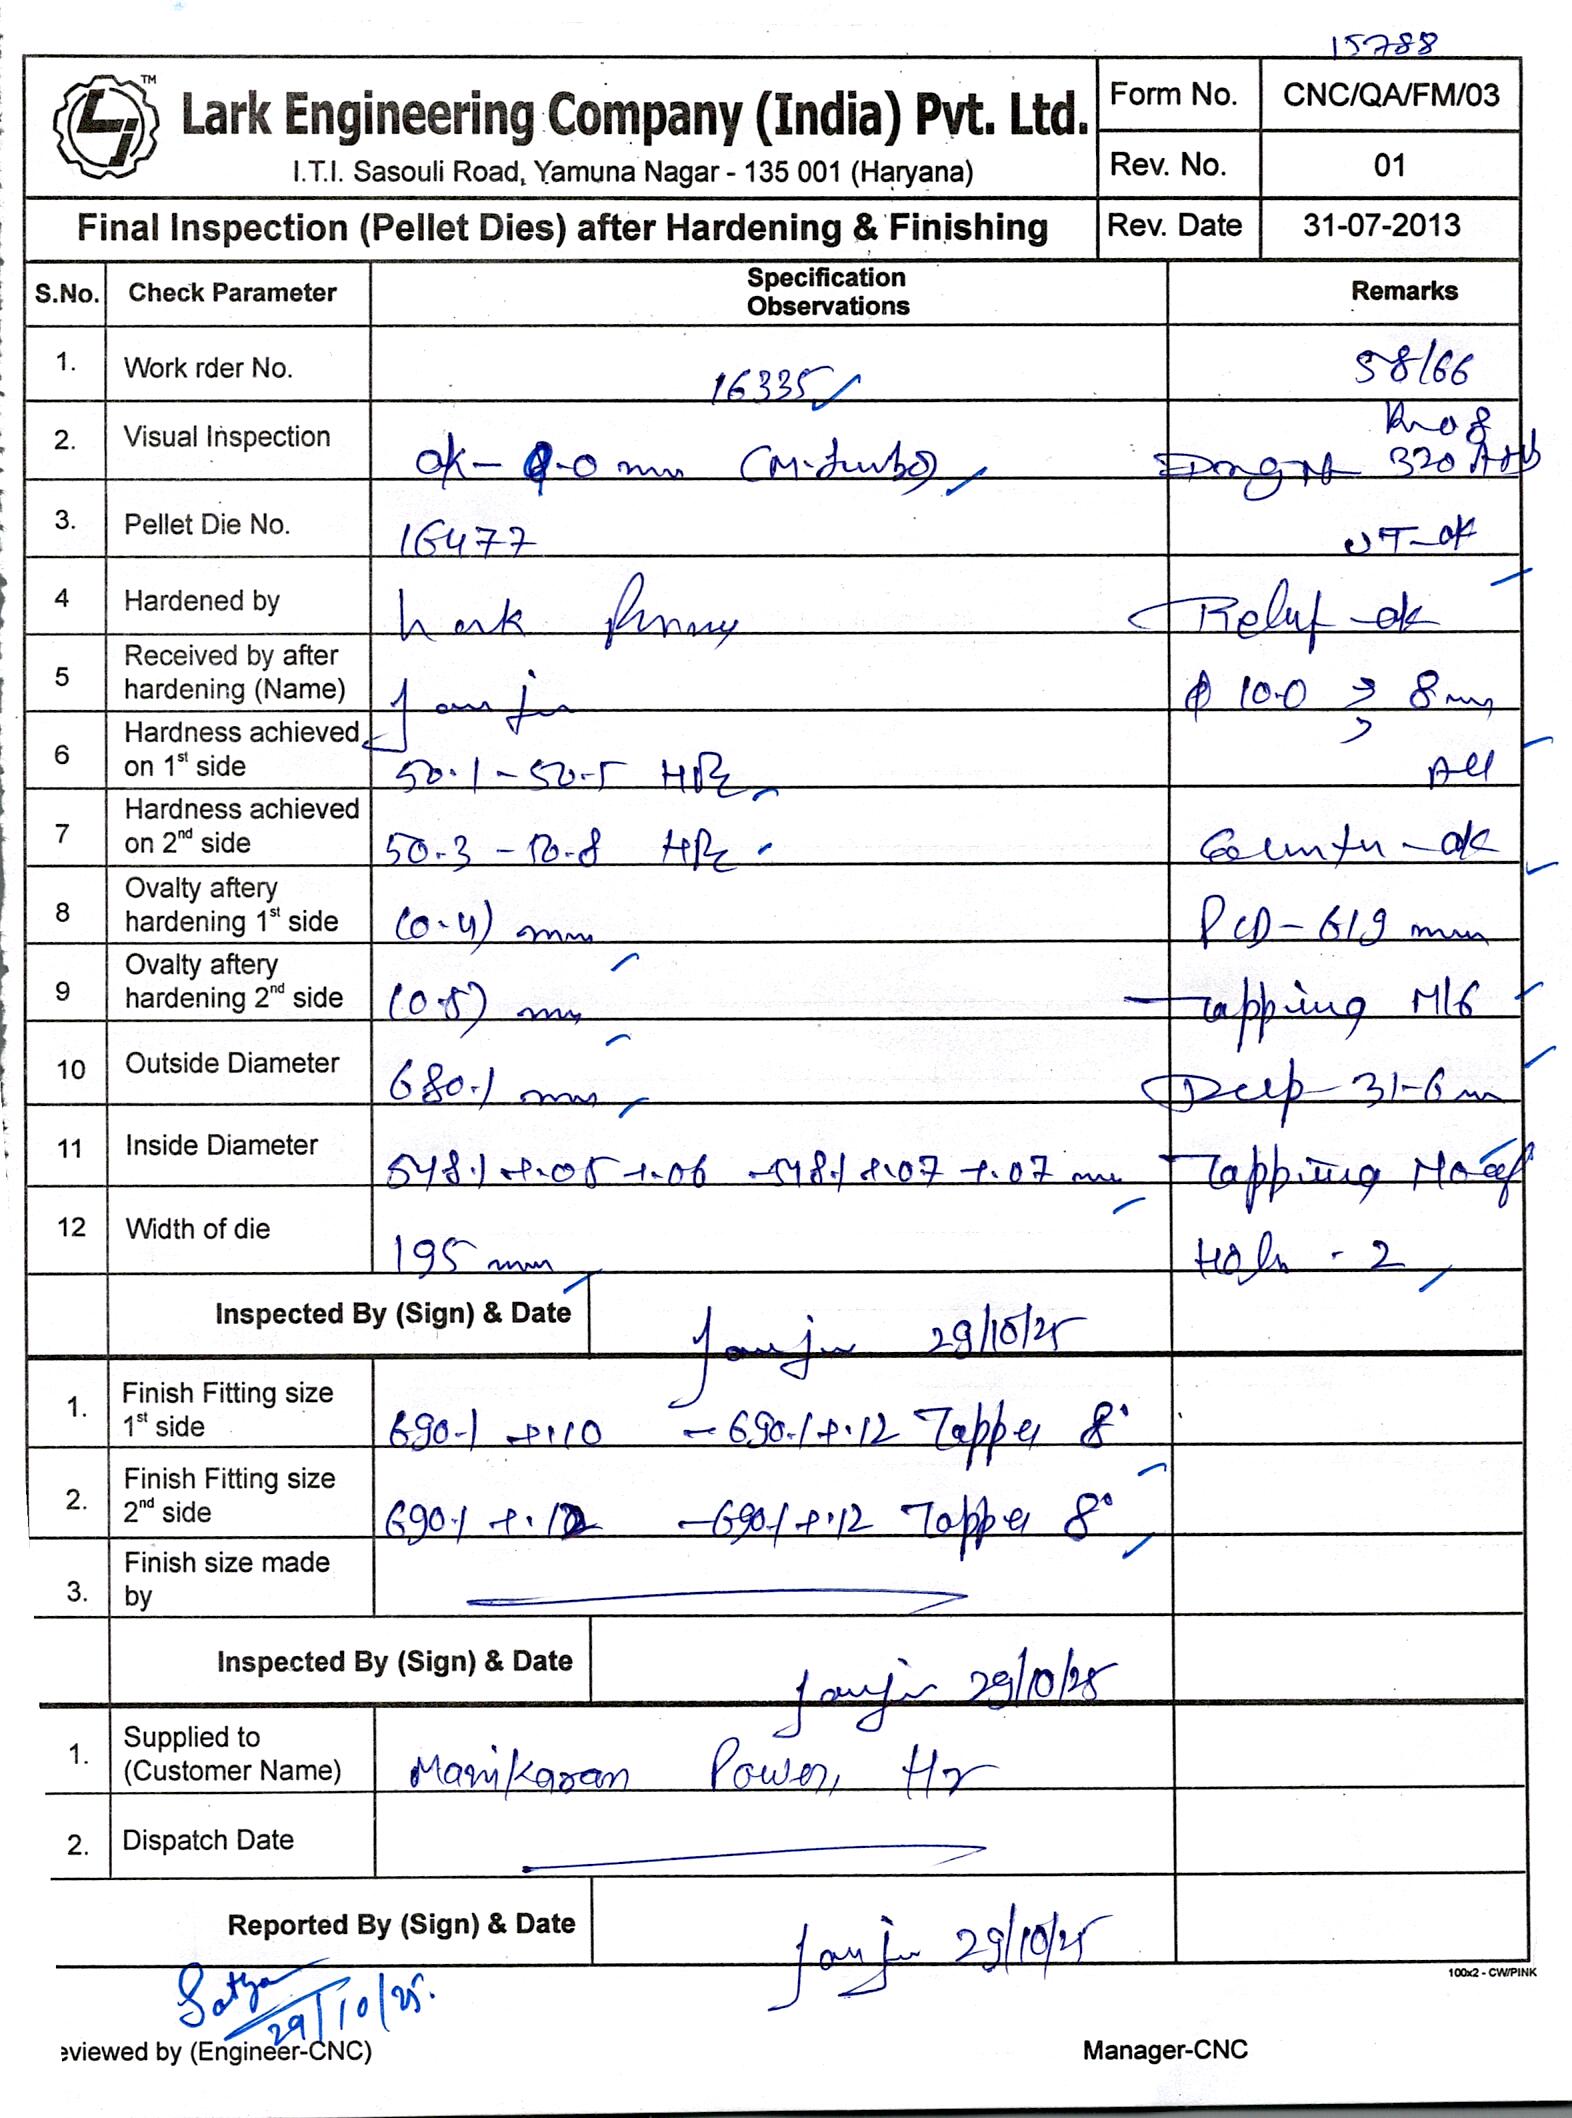 15788
TM
Lark Engineering Company (India) Pvt. Ltd.
I.T.I. Sasouli Road, Yamuna Nagar - 135 001 (Haryana)
Form No. CNC/QA/FM/03
Rev. No. 01
Final Inspection (Pellet Dies) after Hardening & Finishing
Rev. Date 31-07-2013
S.No. Check Parameter Specification Observations Remarks
1. Work rder No. 16335 58/66
2. Visual Inspection ok - .0 mm 320
3. Pellet Die No. 16477 UT-ok
4 Hardened by Lark Relief-ok
5 Received by after hardening (Name) ϕ 10.0 8 mm
6 Hardness achieved on 1st side 50.1 - 50.5 HRc All
7 Hardness achieved on 2nd side 50.3 - 50.8 HRc Counter-ok
8 Ovalty aftery hardening 1st side (0.4) mm PCD - 619 mm
9 Ovalty aftery hardening 2nd side (0.5) mm Tapping M16
10 Outside Diameter 680.1 mm Deep - 31-6 m
11 Inside Diameter 548.1 +.05 +.06 - 548.1 +.07 +.07 mm Tapping
12 Width of die 195 mm Hole - 2
Inspected By (Sign) & Date 29/10/25
1. Finish Fitting size 1st side 690.1 +.10 - 690.1 +.12 Tapper 8°
2. Finish Fitting size 2nd side 690.1 +.12 - 690.1 +.12 Tapper 8°
3. Finish size made by
Inspected By (Sign) & Date 29/10/25
1. Supplied to (Customer Name) Manikaran Power, Hr
2. Dispatch Date
Reported By (Sign) & Date 29/10/25
100x2 - CW/PINK
Satya
29/10/25.
eviewed by (Engineer-CNC) Manager-CNC